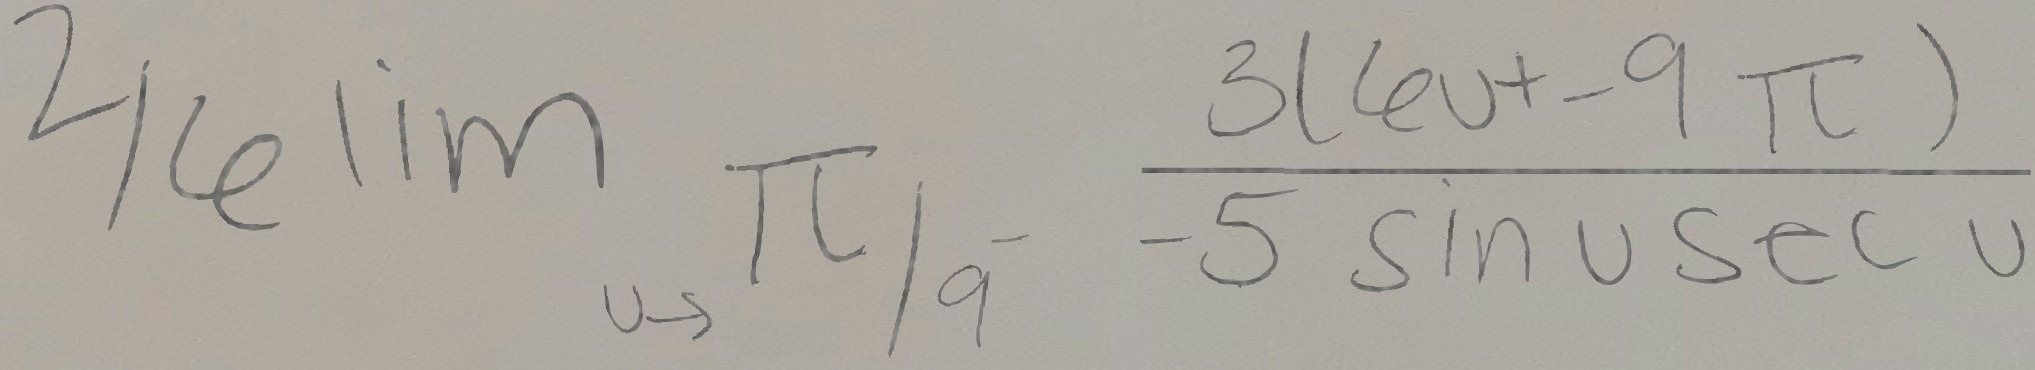 2/6 lim u→ π/9⁻ 3(6u+-9π) / -5 sin u sec u